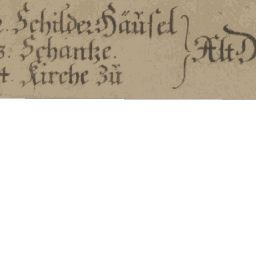 2. Schilder Häusel
3. Schantze.
4. Kirche Zu
Alt D